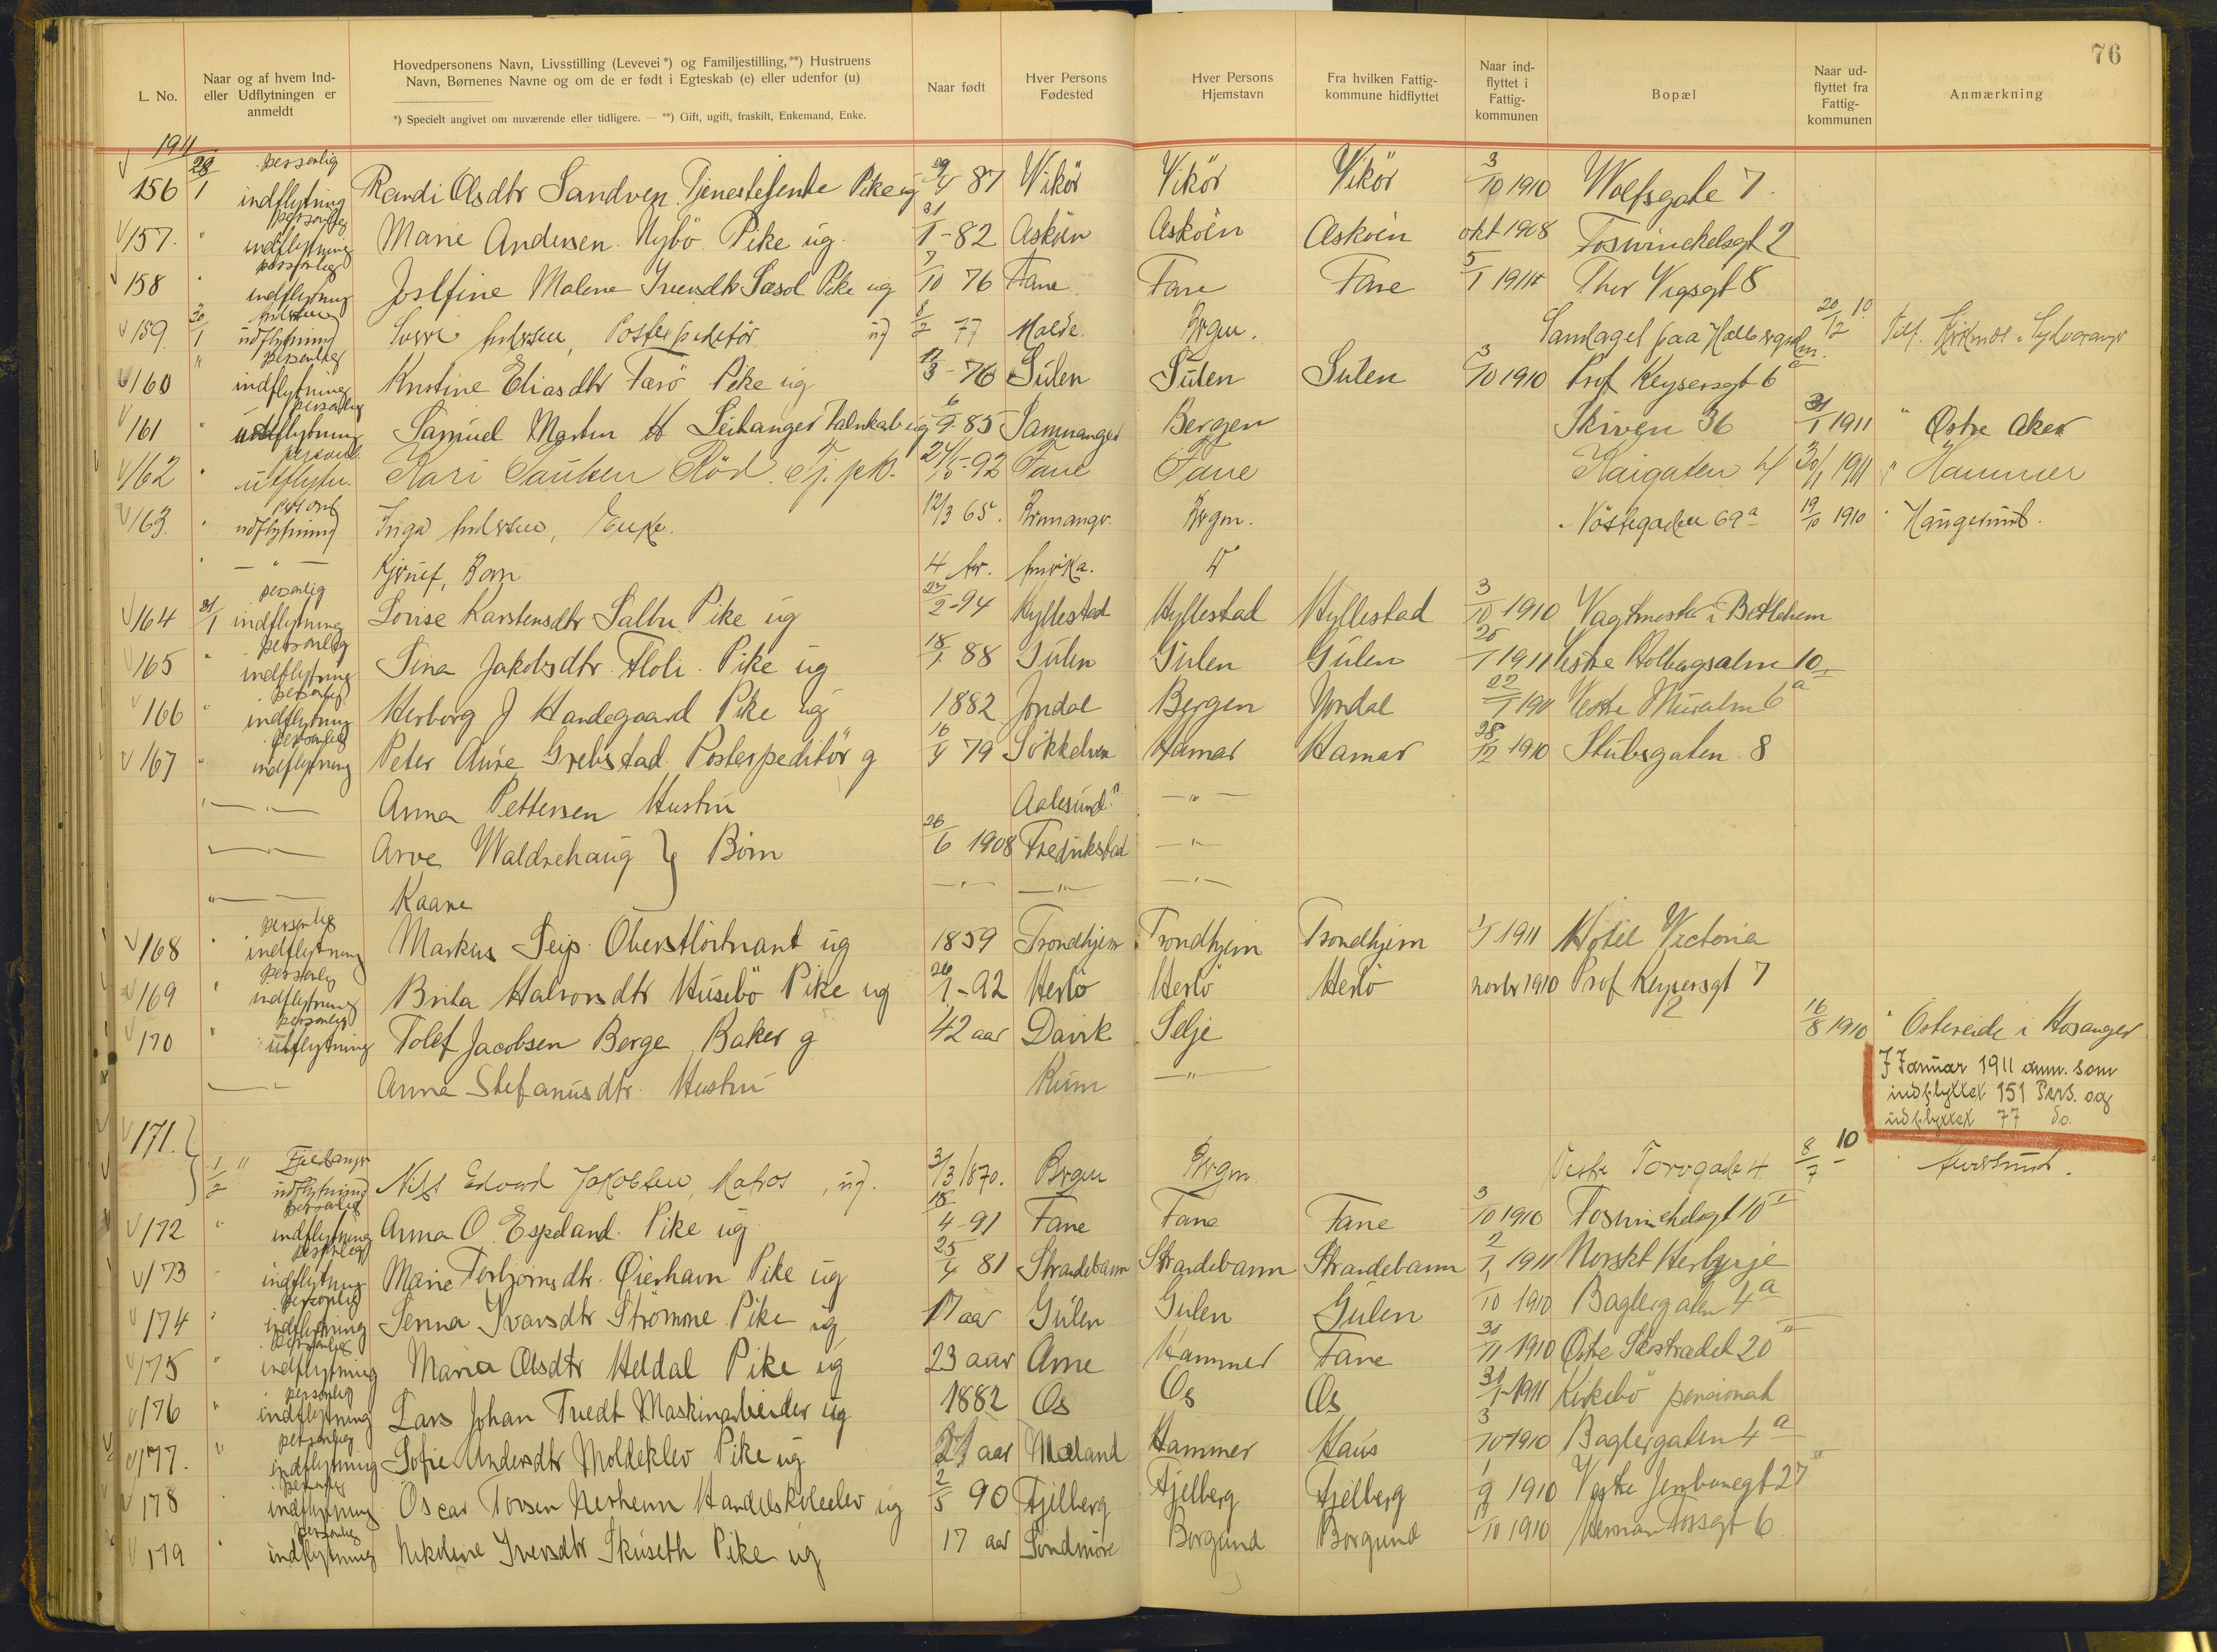 76
L. No.
Naar og af hvem Ind-
eller Udflytningen er
anmeldt
Hovedpersonens Navn, Livsstilling (Levevei*) og Familjestilling,**) Hustruens
Navn, Børnenes Navne og om de er født i Egteskab (e) eller udenfor (u)
*) Specielt angivet om nuværende eller tidligere. — **) Gift, ugift, fraskilt, Enkemand, Enke.
Naar født
Hver Persons
Fødested
Hver Persons
Hjemstavn
Fra hvilken Fattig-
kommune hidflyttet
Naar ind-
flyttet i
Fattig-
kommunen
Bopæl
Naar ud-
flyttet fra
Fattig-
kommunen
Anmærkning
1911
156 28/1 personlig indflytning Randi Olsdtr Sandven Tjenestejente Pike ug 29/4 87 Wikör Vikör Vikör 3/10 1910 Wolfsgate 7
157. " personlig indflytning Marie Andersen Nybö Pike ug. 31/1-82 Asköen Asköen Asköen okt 1908 Foswinckelsgt 2
158 " personlig indflytning Josefine Malene Iversdtr Pike ug 7/10 76 Fane Fane Fane 5/1 1911 Thor Vigsgt 8
159. 30/1 udflytning Postexpeditör ug 8/2 77 Molde. Brgen. 20/12 10 Tilf.
160 " personlig indflytning Kristine Eliasdtr Farö Pike ug 12/3-76 Gulen Gulen Gulen 3/10 1910 Prof Keysersgt 6a
161 " personlig udflytning Samuel Martin H Leihanger ug 6/9-85 Samnanger Bergen Skiven 36 31/1 1911 " Østre Aker
162 " personl. utflytn. Kari Paulsen Röd Tj. pk. 24/5-92 Fane Fane Kaigaten 4 30/1 1911 " Hammer
163. " udflytning Inga Enke. 12/3 65. Brgen. Nöstegaden 69a 19/10 1910 " Haugesund.
" — " — Barn 4 Aar.
164 31/1 personlig indflytning Lovise Karstensdtr Saltu Pike ug 27/2-94 Hyllestad Hyllestad Hyllestad 3/10 1910 Vagtmester i Betlehem
165 " personlig indflytning Sina Jakobsdtr Floli Pike ug 18/1 88 Gulen Gulen Gulen 25/1 1911 Vestre Holbergsalm 10
166 " personlig indflytning Herborg J Handegaard Pike ug 1882 Jondal Bergen Jondal 22/1 1911 Vestre Muralm 6a
167 " personlig indflytning Peter Aure Grebstad Postexpeditör g 16/4 79 Sökkelven Hamar Hamar 28/12 1910 Stubsgaten 8
— " — Anna Pettersen Hustru Aalesund — " —
— " — Arve Waldrehaug } Börn 26/6 1908 Fredrikstad — " —
" — Kaare — " — — " — — " —
168 " personlig indflytning Markus Seip Oberstlöitnant ug 1859 Trondhjem Trondhjem Trondhjem 1/1 1911 Hotel Victoria
169 " personlig indflytning Brita Halvorsdtr Husebö Pike ug 26/1-92 Herlö Herlö Herlö novbr 1910 Prof Keysersgt 7
170 " personlig utflytning Tolef Jacobsen Berge Baker g 42 aar Davik Selje 16/8 1910 " Ostereide i Hosanger
— " — Anna Stefanusdtr Hustru — " —
I Januar 1911 anm. som
indflyttet 151 Pers. og
udflyttet 77 do.
171. 1/2 " udflytning Nils Edvard Jakobsen, Matros, ug. 3/3 1870. Brgen Brgen Vestre Torvgade 4 8/7 10
172 " personlig indflytning Anna O. Espeland Pike ug 18/4-91 Fane Fane Fane 3/10 1910 Foswinckelsgt 10 II
173 personlig indflytning Marie Torbjörnsdtr Øierhavn Pike ug 25/4 81 Strandebarm Strandebarm Strandebarm 2/1 1911 Norskt Herberge
174 " personlig indflytning Senna Ivarsdtr Strömme Pike ug 17 aar Gulen Gulen Gulen 10 1910 Baglergaten 4a
175 " personlig indflytning Maria Olsdtr Heldal Pike ug 23 aar Arne Hammer Fane 30/11 1910 Østre Skostrædet 20
176 " personlig indflytning Lars Johan Tvedt Maskinarbeider ug 1882 Os Os Os 31/1-1911 Kirkebö pensionat
177. " personlig indflytning Sofie Andersdtr Moldeklev Pike ug 21 aar Mæland Hammer Haus 3/10 1910 Baglergaten 4a
178 personlig indflytning Oscar Torsen Nerheim Handelskoleelev ug 2/5 90 Fjelberg Fjelberg Fjelberg 1/9 1910 Vestre Jernbanegt 27
179 personlig indflytning Nikoline Iversdtr Skuseth Pike ug 17 aar Söndmöre Borgund Borgund 10 1910 Herman Fossgt 6